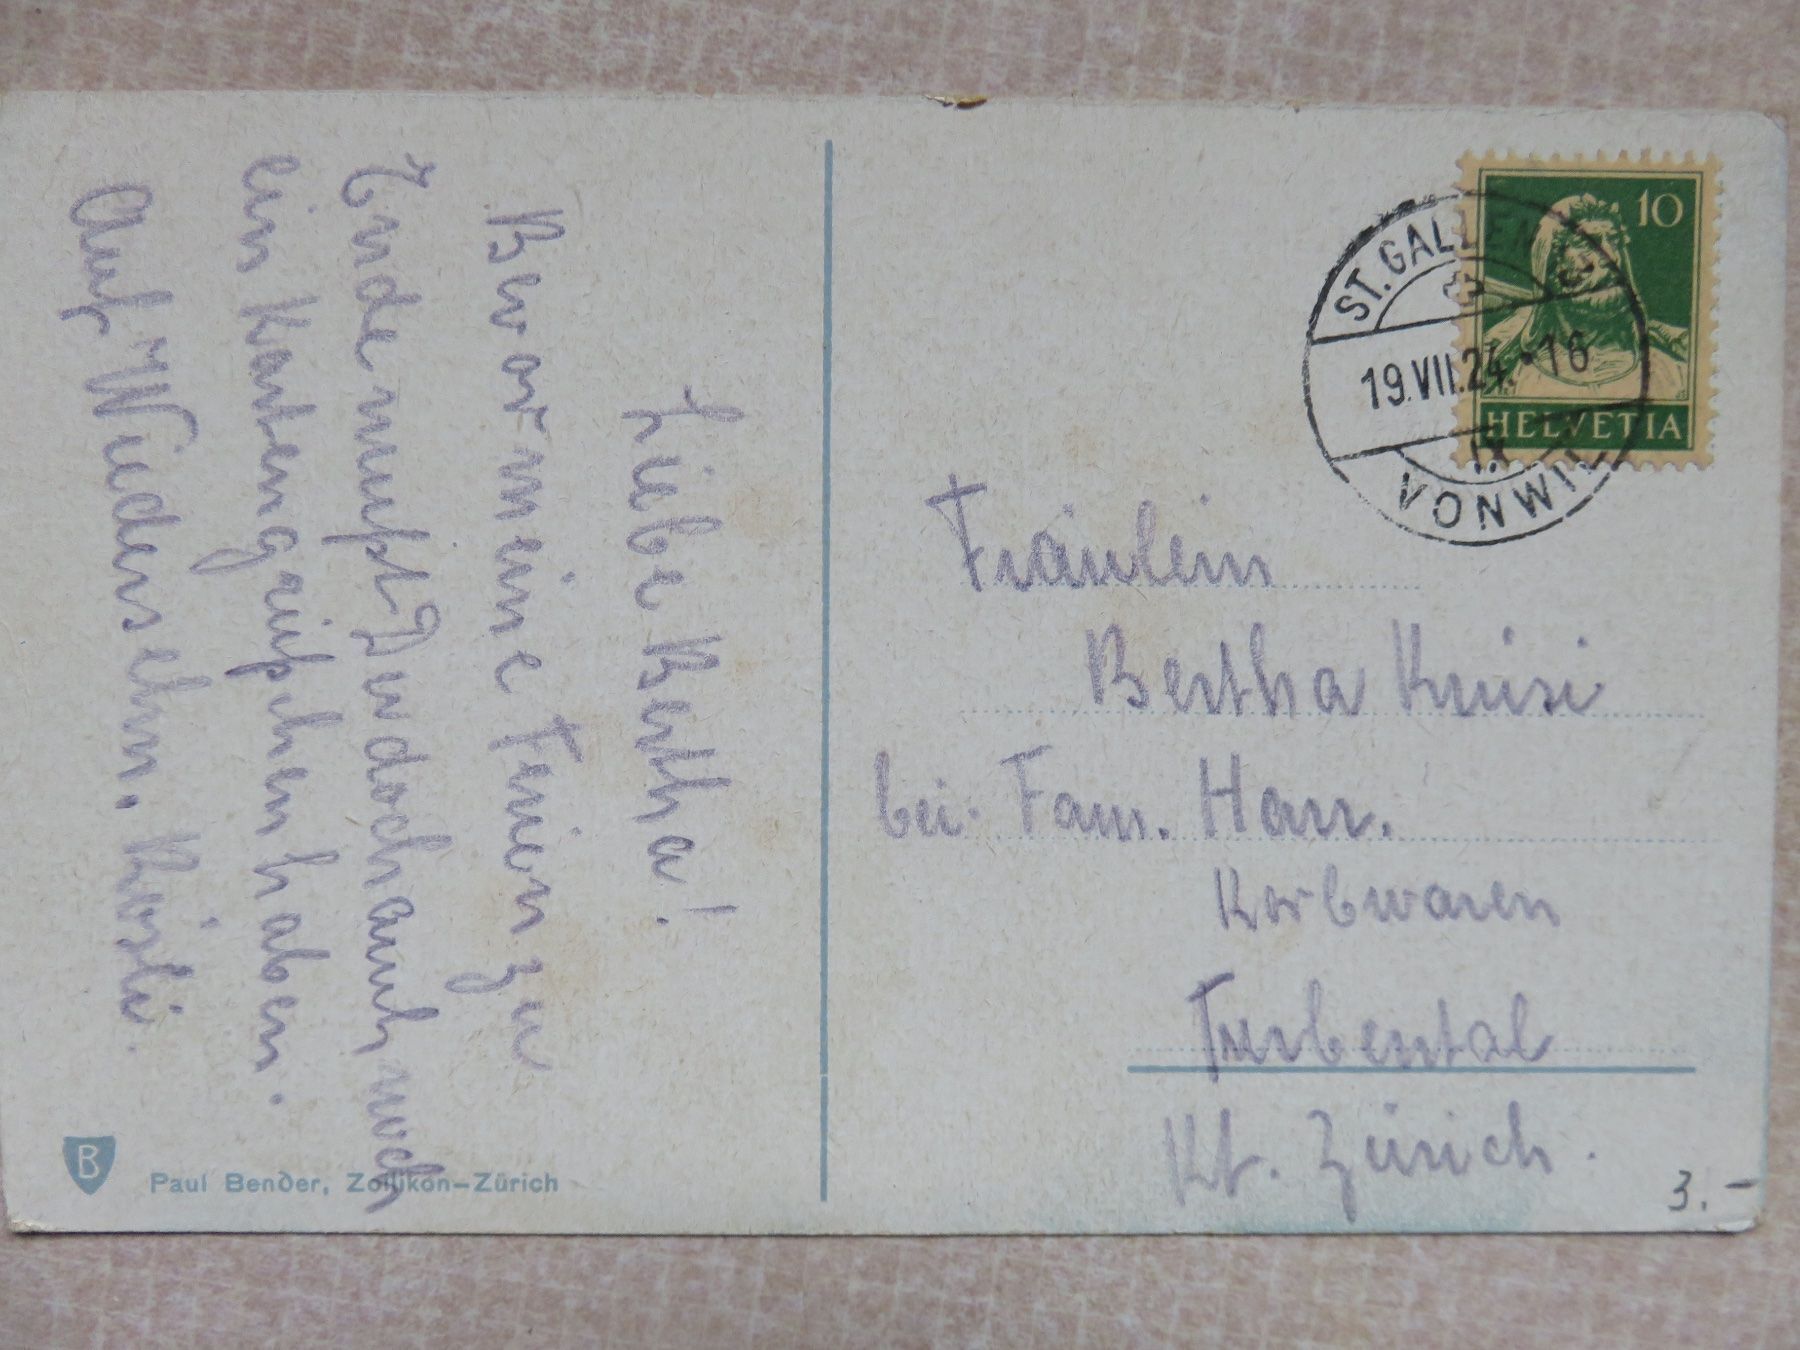 Liebe Bertha!
Bevor meine Ferien zu
Ende mußt Du doch auch noch
ein Kartengrüßchen haben.
Auf Wiedersehn. Rösli.
B
Paul Bender, Zollikon-Zürich
10
HELVETIA
ST. GALLEN
19.VII.24.•16
VONWIL
Fräulein
Bertha
bei Fam.
Korbwaren
Turbental
Kt. Zürich.
3.-